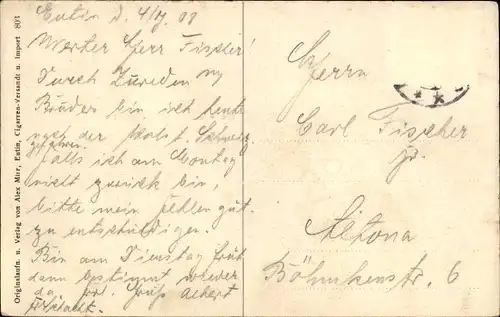 Eutin d. 4/7. 08
Werter Herr Fischer!
Durch Zureden m/
Bruders bin ich heute
nach der Holst. Schweiz
gefahren.
Falls ich am Montag
nicht zurück bin,
bitte mein Fehlen gut.
zu entschuldigen.
Bin am Dienstag früh
dann bestimmt wieder
da. Gruß Albert
Herrn
Carl Fischer
jr.
Altona
Böhmkenstr. 6
Originalaufn. u. Verlag von Alex Mitz, Eutin, Cigarren-Versandt u. Import 803